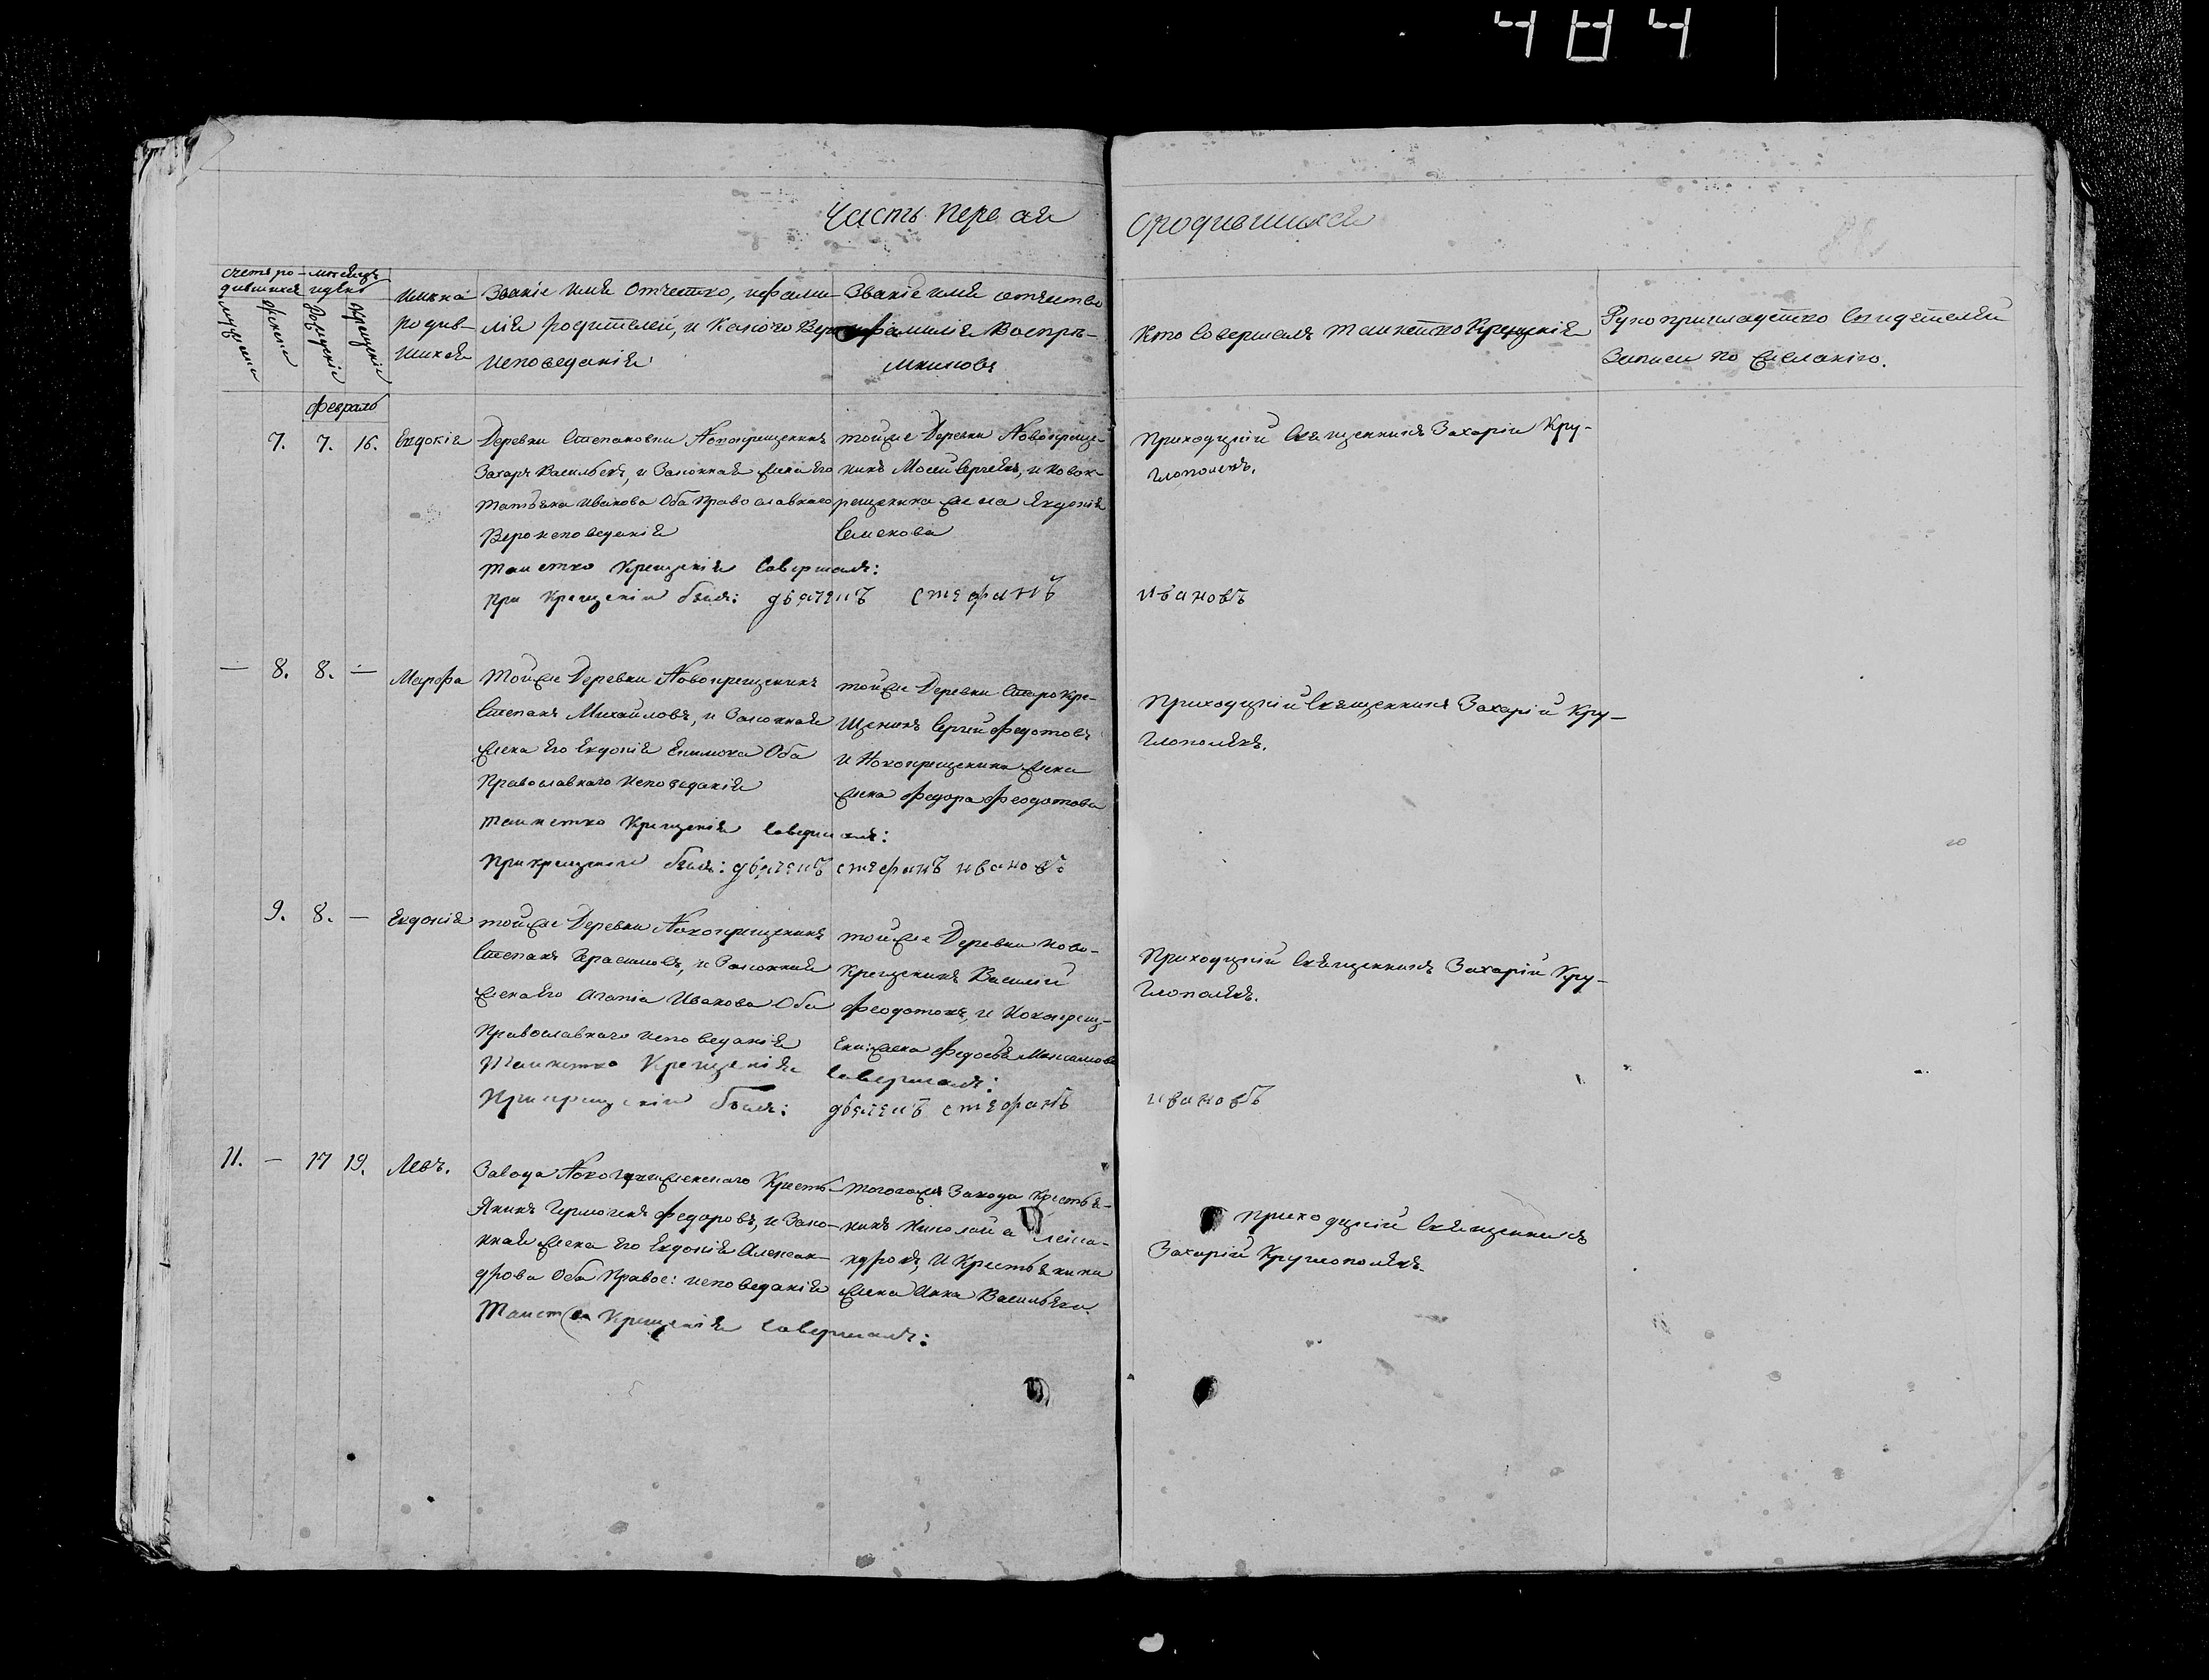 484
Часть первая
о родившихся
Счетъ ро-
дившихся
мужеска
женска
Мѣсяцъ
и день
Рожденіе
Крещеніе
Имяна
родив-
шихся
Званіе имя отчество, и фами-
лія родителей, и какого Веро
исповеданія
Званіе имя отчество
и фамилія Воспрі-
емниковъ
Кто Совершалъ таинство Крещенія
Рукоприкладство свидетелей
Записи по Желанію.
Февраль
7. 7. 16. Евдокія
Деревни Степановки Новокрещенинъ
Захаръ Васильевъ, и Законная Жена Его
Татьяна Иванова Оба Православнаго
Вероисповеданія
тойже Деревни Новокреще-
нинъ Мосей Сергеевъ, и новок-
рещенина Жена Евдокія
Семенова
Приходский Священникъ Захарій Кру-
глополевъ.
таинство Крещенія Совершалъ:
При Крещеніи былъ: дьячекъ стефанъ
ивановъ
— 8. 8. — Марфа
Тойже Деревни Новокрещенинъ
Степанъ Михайловъ, и Законная
Жена Его Евдокія Екимова Оба
Православнаго Исповеданія
тойже Деревни Старокре-
щенинъ Сергей Федотовъ
и Новокрещенина Жена
Жена Федора Феодотова
Приходский Священникъ Захарій Кру-
глополевъ.
таинство Крещенія Совершалъ:
При крещеніи былъ: дьячекъ стефанъ ивановъ
9. 8. — Евдокія
тойже Деревни Новокрещенинъ
Степанъ Герасимовъ, и Законная
Жена Его Агапіа Иванова Оба
Православнаго исповеданія
тойже Деревни ново-
крещенинъ Василій
Феодотовъ, и Новокрещ-
ени: Жена Федосья Максимова
Приходский Священникъ Захарій Кру-
глополевъ.
Таинство Крещенія Совершалъ:
При крещеніи былъ: дьячекъ стефанъ
ивановъ
11. — 17 19. Левъ.
Завода Кресть-
янинъ Гермогенъ Федоровъ, и Зако-
нная Жена Его Евдокія Алексан-
дрова Оба Правос: исповеданія
тогожъ Завода Крестья-
нинъ Николай Алекса-
ндровъ, и Крестьянина
Жена Анна Васильева.
Приходский Священникъ
Захарій Круглополевъ.
Таинства Крещенія Совершалъ: